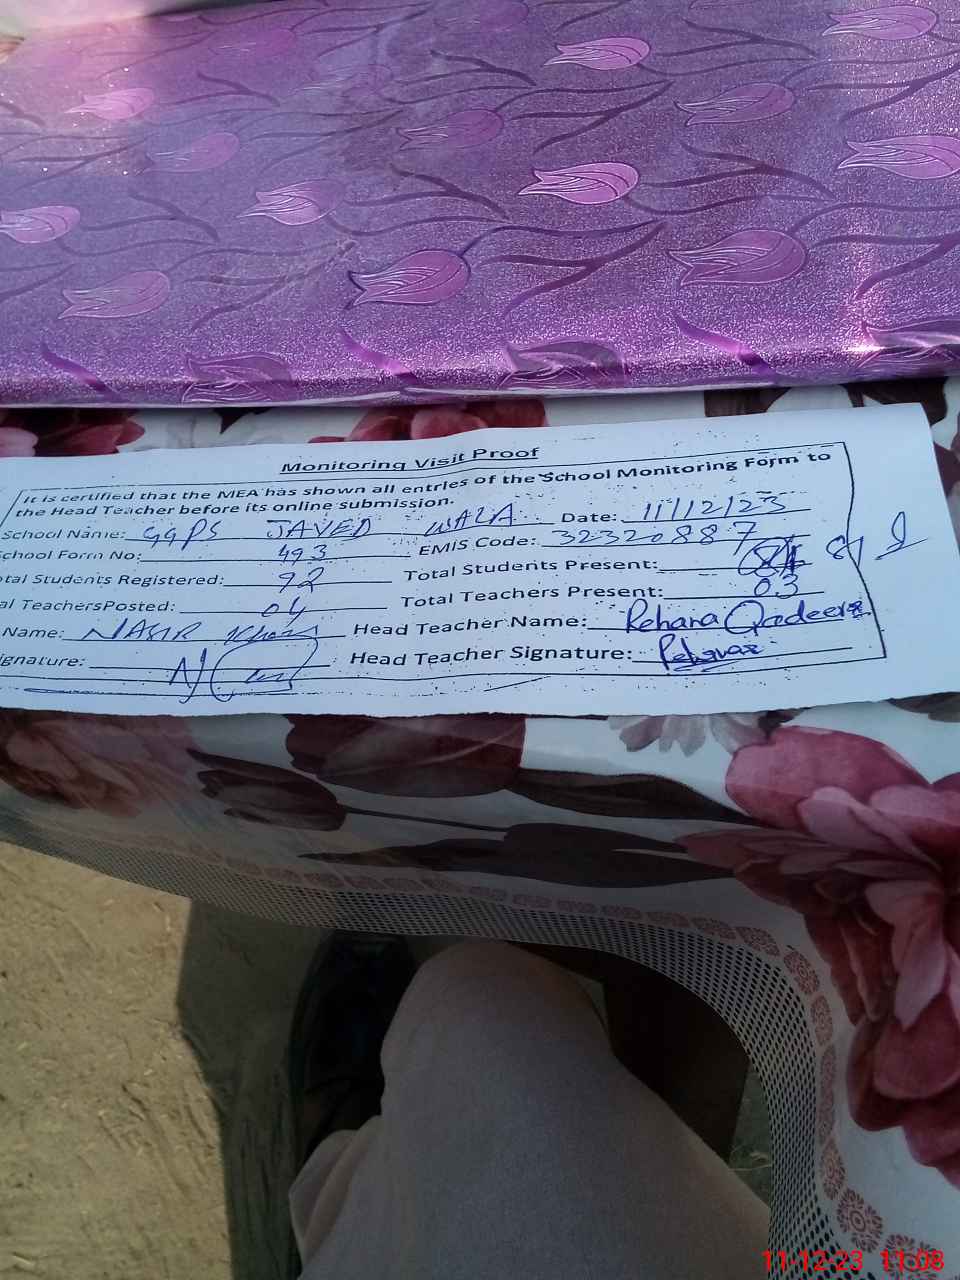 Monitoring Visit Proof
It is certified that the MEA has shown all entries of the School Monitoring Form to
the Head Teacher before its online submission.
School Name: GGPS JAVED WALA Date: 11/12/23
School Form No: 493 EMIS Code: 32320887
tal Students Registered: 92 Total Students Present: 81
al TeachersPosted: 04 Total Teachers Present: 03
Name: NASIR Khan Head Teacher Name: Rehana Qadeer
ignature: Head Teacher Signature: Rehana
11-12-23 11:08